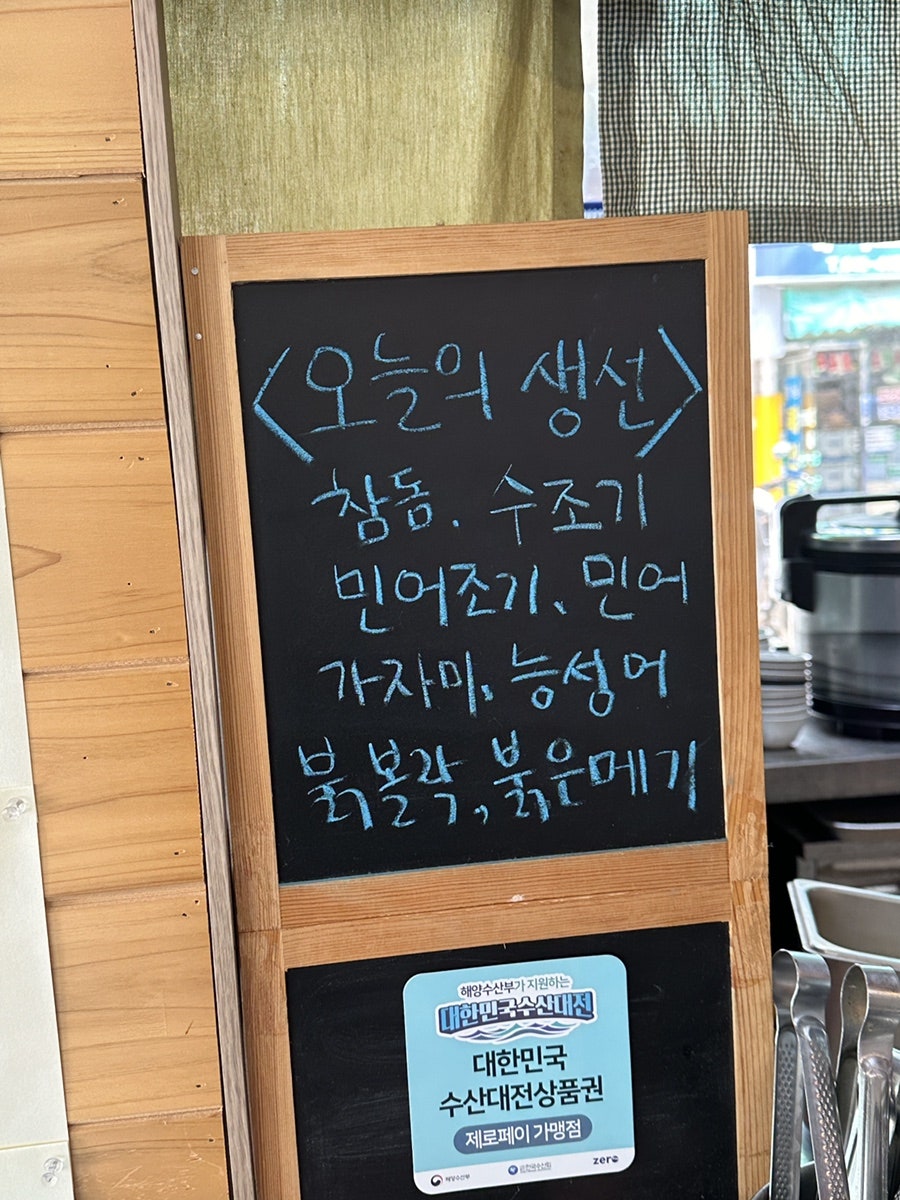 <오늘의 생선>
참돔. 수조기
민어조기、민어
가자미. 능성어
붉볼락, 붉은메기
해양수산부가 지원하는
대한민국수산대전
대한민국
수산대전상품권
제로페이 가맹점
해양수산부
zero